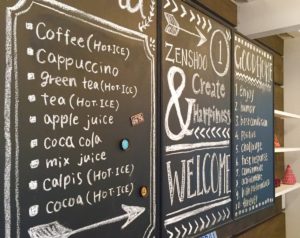 Coffee (HOT・ICE)
Cappuccino
green tea (HOT・ICE)
tea (HOT・ICE)
apple juice
coca cola
mix juice
calpis (HOT・ICE)
cocoa (HOT・ICE)
ZENSHOO
1
& Create
Happiness
WELCOME
GOOD TIME
1 Enjoy
2 humor
4 Positive
5 challenge
6 fast response